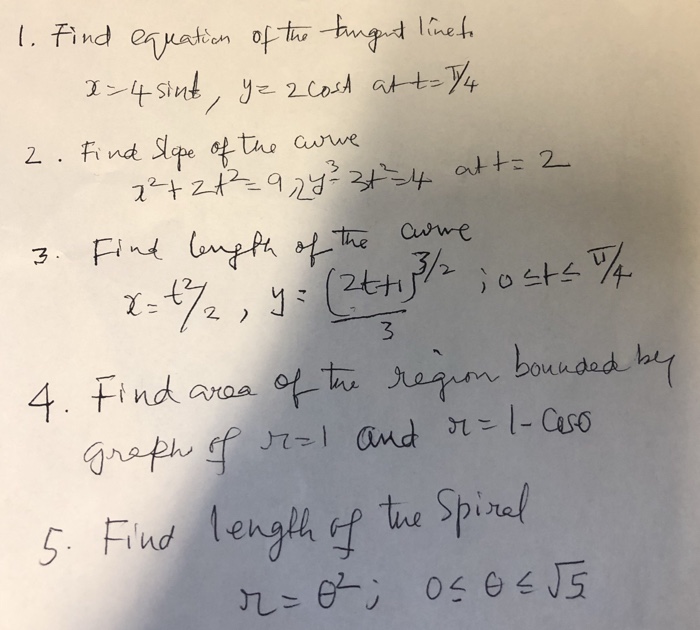 1. Find equation of the tangent line to
x = 4 sint, y = 2 cost at t = π/4
2. Find slope of the curve
x² + 2t² = 9, 2y³ - 3t² = 4 at t = 2
3. Find length of the curve
x = t²/2, y = (2t+1)^3/2 / 3 ; 0 ≤ t ≤ π/4
4. Find area of the region bounded by
graph of r = 1 and r = 1 - Cosθ
5. Find length of the Spiral
r = θ² ; 0 ≤ θ ≤ √5